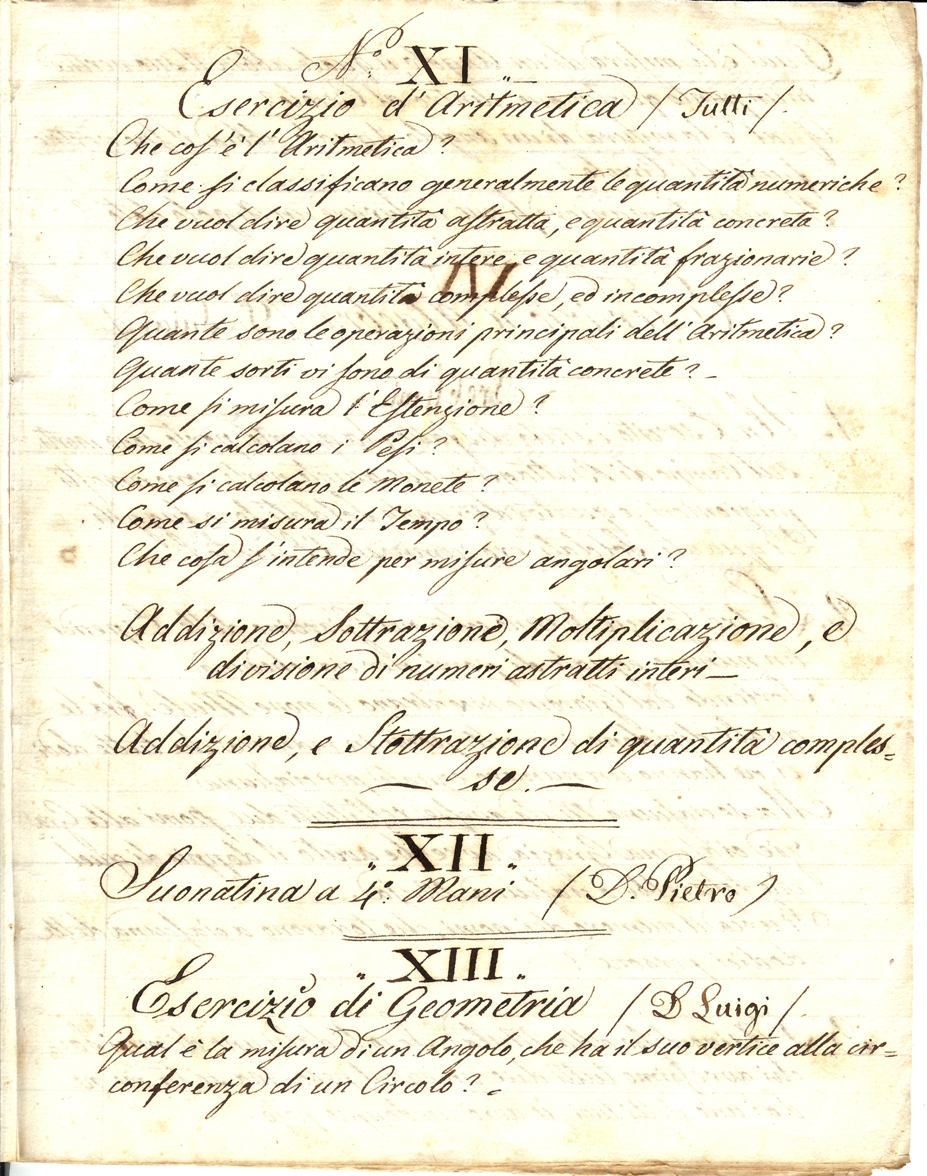 N.º XI.
Esercizio d'Aritmetica / Tutti /.
Che cos'è l'Aritmetica?
Come si classificano generalmente le quantità numeriche?
Che vuol dire quantità astratta, e quantità concreta?
Che vuol dire quantità intere, e quantità frazionarie?
Che vuol dire quantità complesse, ed incomplesse?
Quante sono le operazioni principali dell'Aritmetica?
Quante sorti vi sono di quantità concrete? -
Come si misura l'Estenzione?
Come si calcolano i Pesi?
Come si calcolano le Monete?
Come si misura il Tempo?
Che cosa s'intende per misure angolari?
Addizione, Sottrazione, Moltiplicazione, e
divisione di numeri astratti interi—
Addizione, e Stottrazione di quantità comples=
— se. —
„ XII „
Suonatina a 4.º Mani / D. Pietro /
„ XIII „
Esercizio di Geometria / D Luigi /.
Qual è la misura di un Angolo, che ha il suo vertice alla cir=
conferenza di un Circolo? -